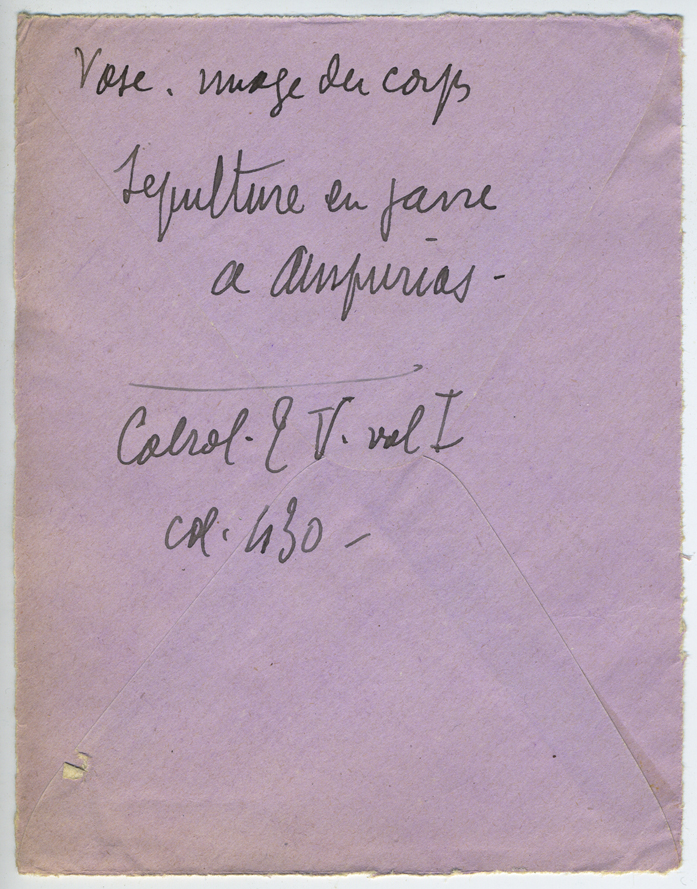 Vase. image du corps
Sépulture en jarre
a Ampurias -
Cabrol. T V. vol I
col. 430 -